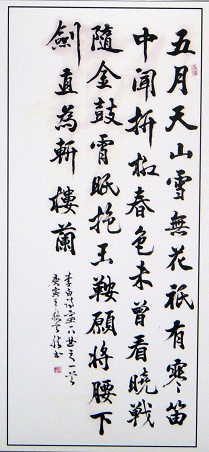 五月天山雪無花祇有寒笛
中聞折柳春色未曾看曉戰
隨金鼓霄眠抱玉鞍願將腰下
劍直為斬樓蘭
李白詩六首之一
庚寅書